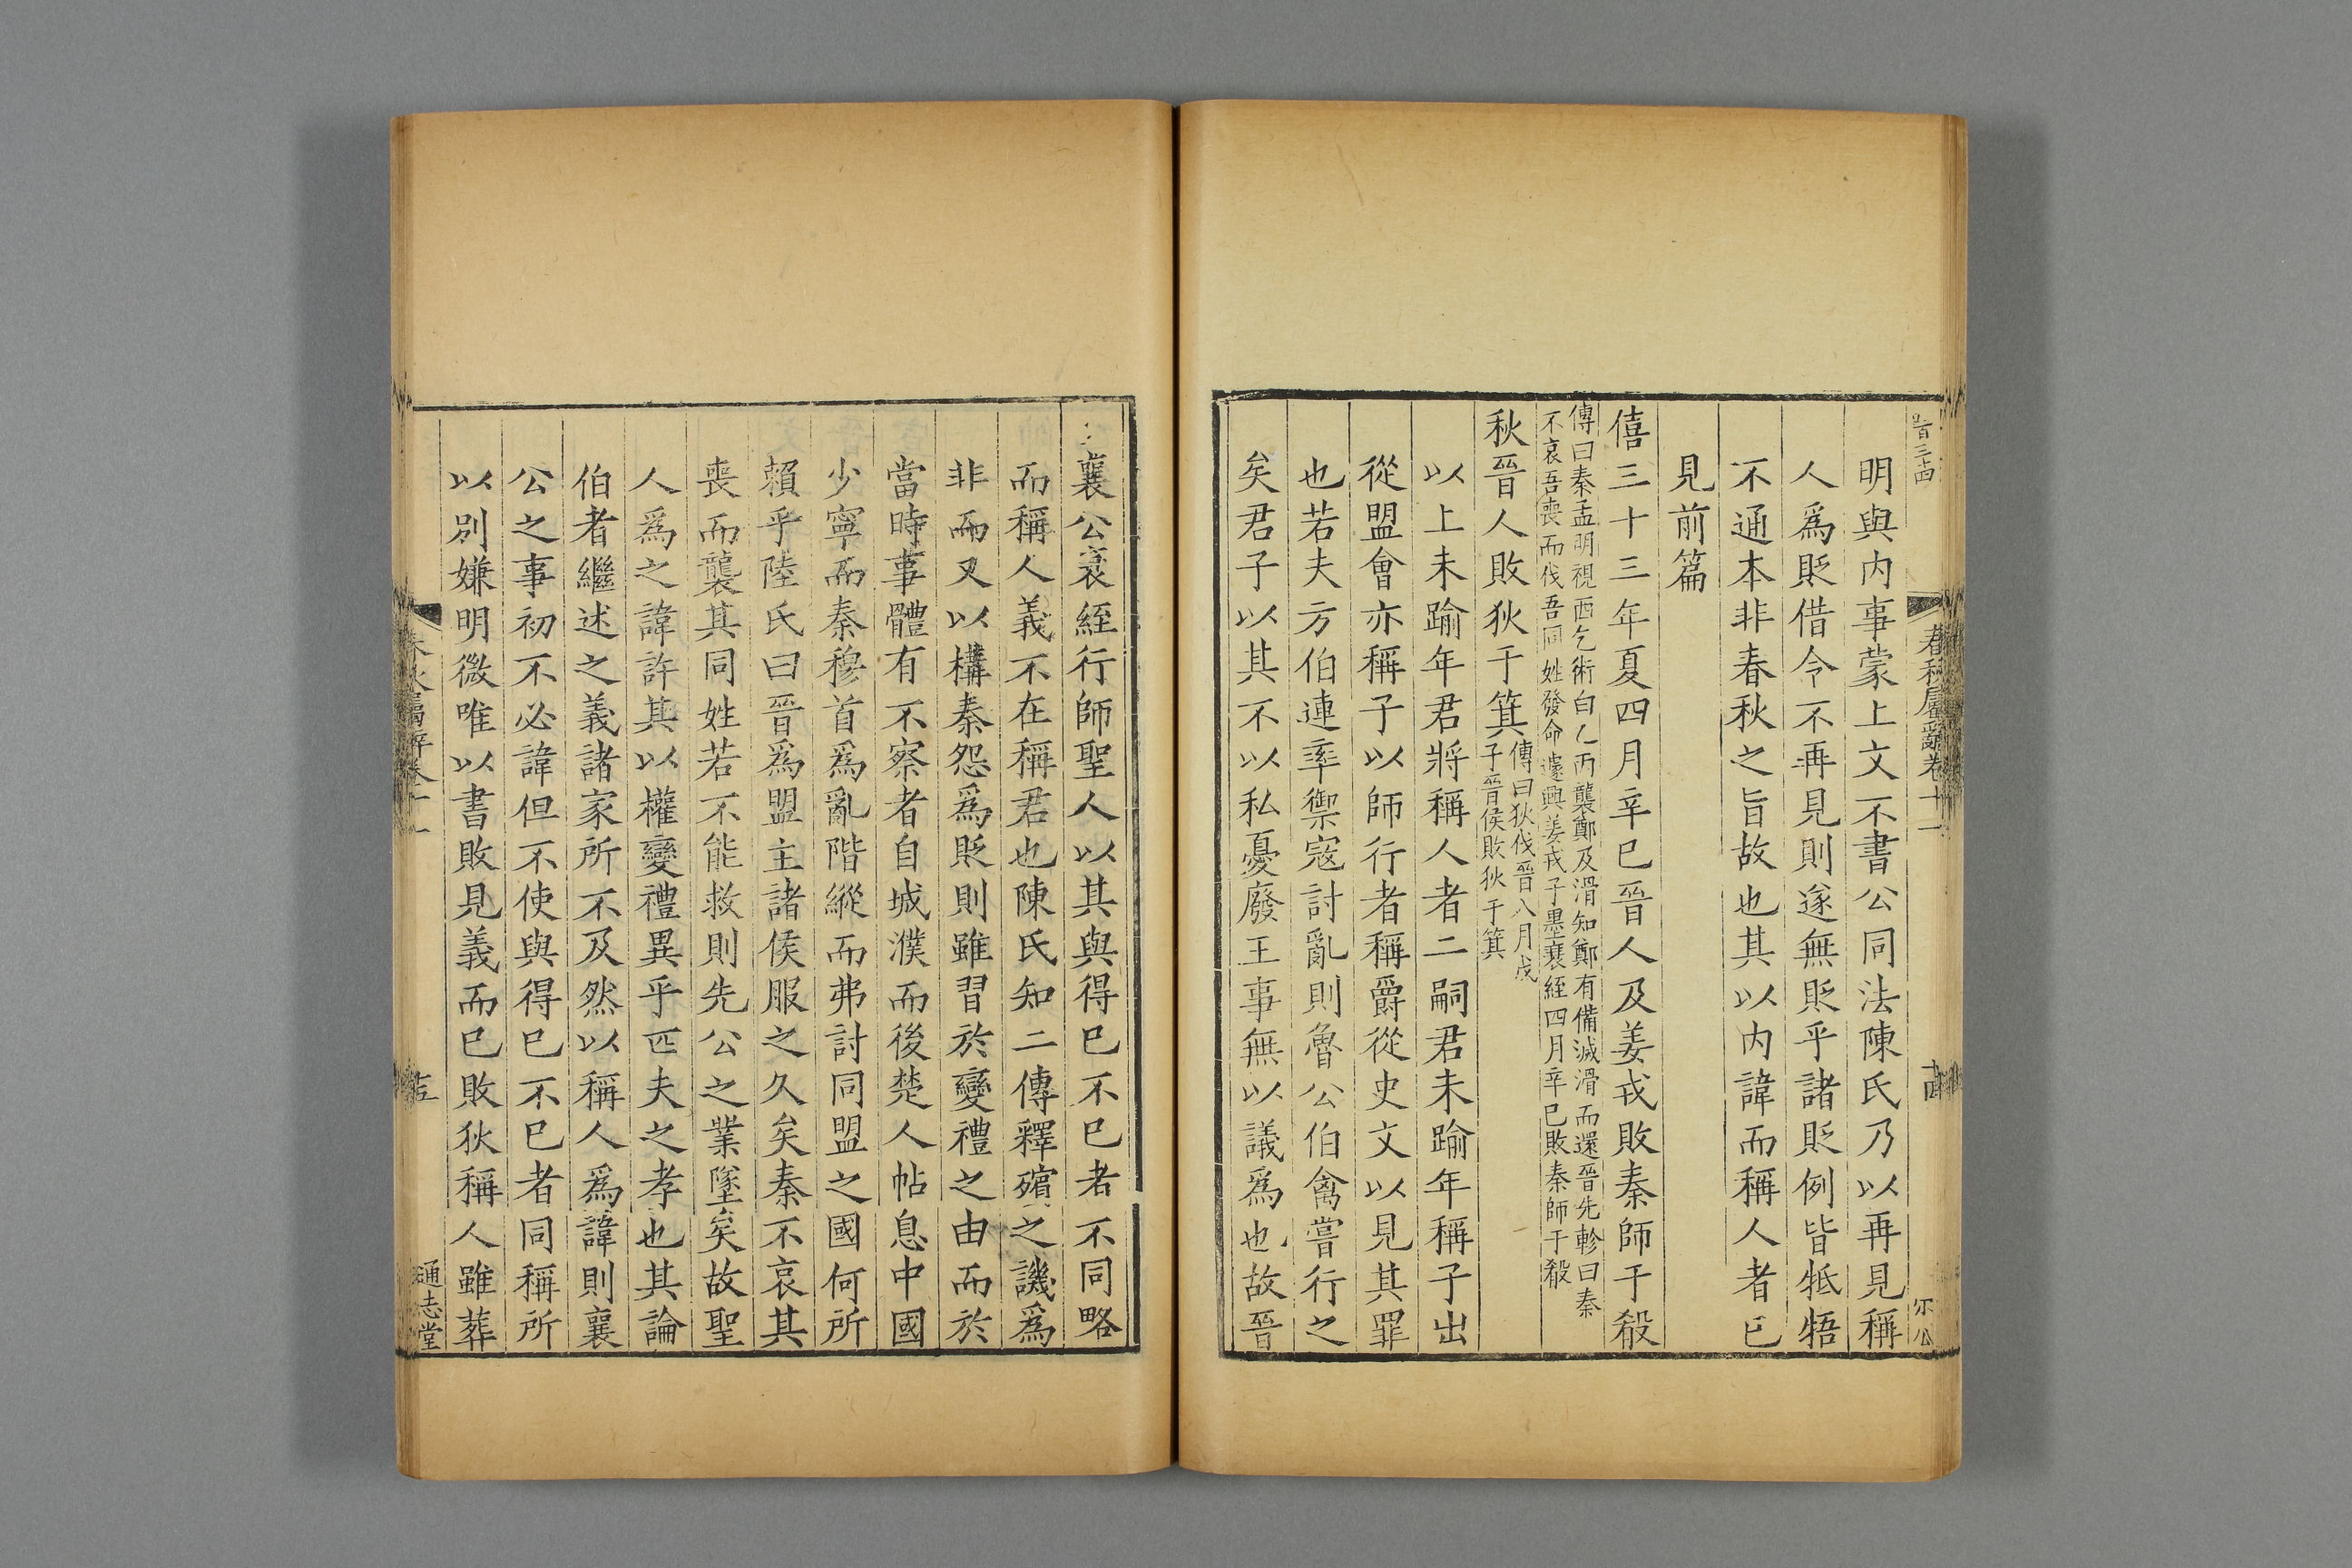 春秋屬辭卷十一
十四
明與内事蒙上文不書公同法陳氏乃以再見稱
人爲貶借令不再見則遂無貶乎諸貶例皆牴牾
不通本非春秋之旨故也其以内諱而稱人者已
見前篇
僖三十三年夏四月辛巳晉人及姜戎敗秦師于殽
傳曰秦孟明視西乞術白乙丙襲鄭及滑知鄭有備滅滑而還晉先軫曰秦
不哀吾喪而伐吾同姓發命遽興姜戎子墨衰絰四月辛巳敗秦師于殽
秋晉人敗狄于箕
傳曰狄伐晉八月戊
子晉侯敗狄于箕
以上未踰年君將稱人者二嗣君未踰年稱子出
從盟會亦稱子以師行者稱爵從史文以見其罪
也若夫方伯連率禦寇討亂則魯公伯禽嘗行之
矣君子以其不以私憂廢王事無以議爲也故晉
襄公衰絰行師聖人以其與得已不已者不同略
而稱人義不在稱君也陳氏知二傳釋殯之譏爲
非而又以構秦怨爲貶則雖習於變禮之由而於
當時事體有不察者自城濮而後楚人帖息中國
少寧而秦穆首爲亂階縱而弗討同盟之國何所
賴乎陸氏曰晉爲盟主諸侯服之久矣秦不哀其
喪而襲其同姓若不能救則先公之業墜矣故聖
人爲之諱許其以權變禮異乎匹夫之孝也其論
伯者繼述之義諸家所不及然以稱人爲諱則襄
公之事初不必諱但不使與得已不已者同稱所
以別嫌明微唯以書敗見義而已敗狄稱人雖葬
春秋屬辭卷十一
十五
通志堂